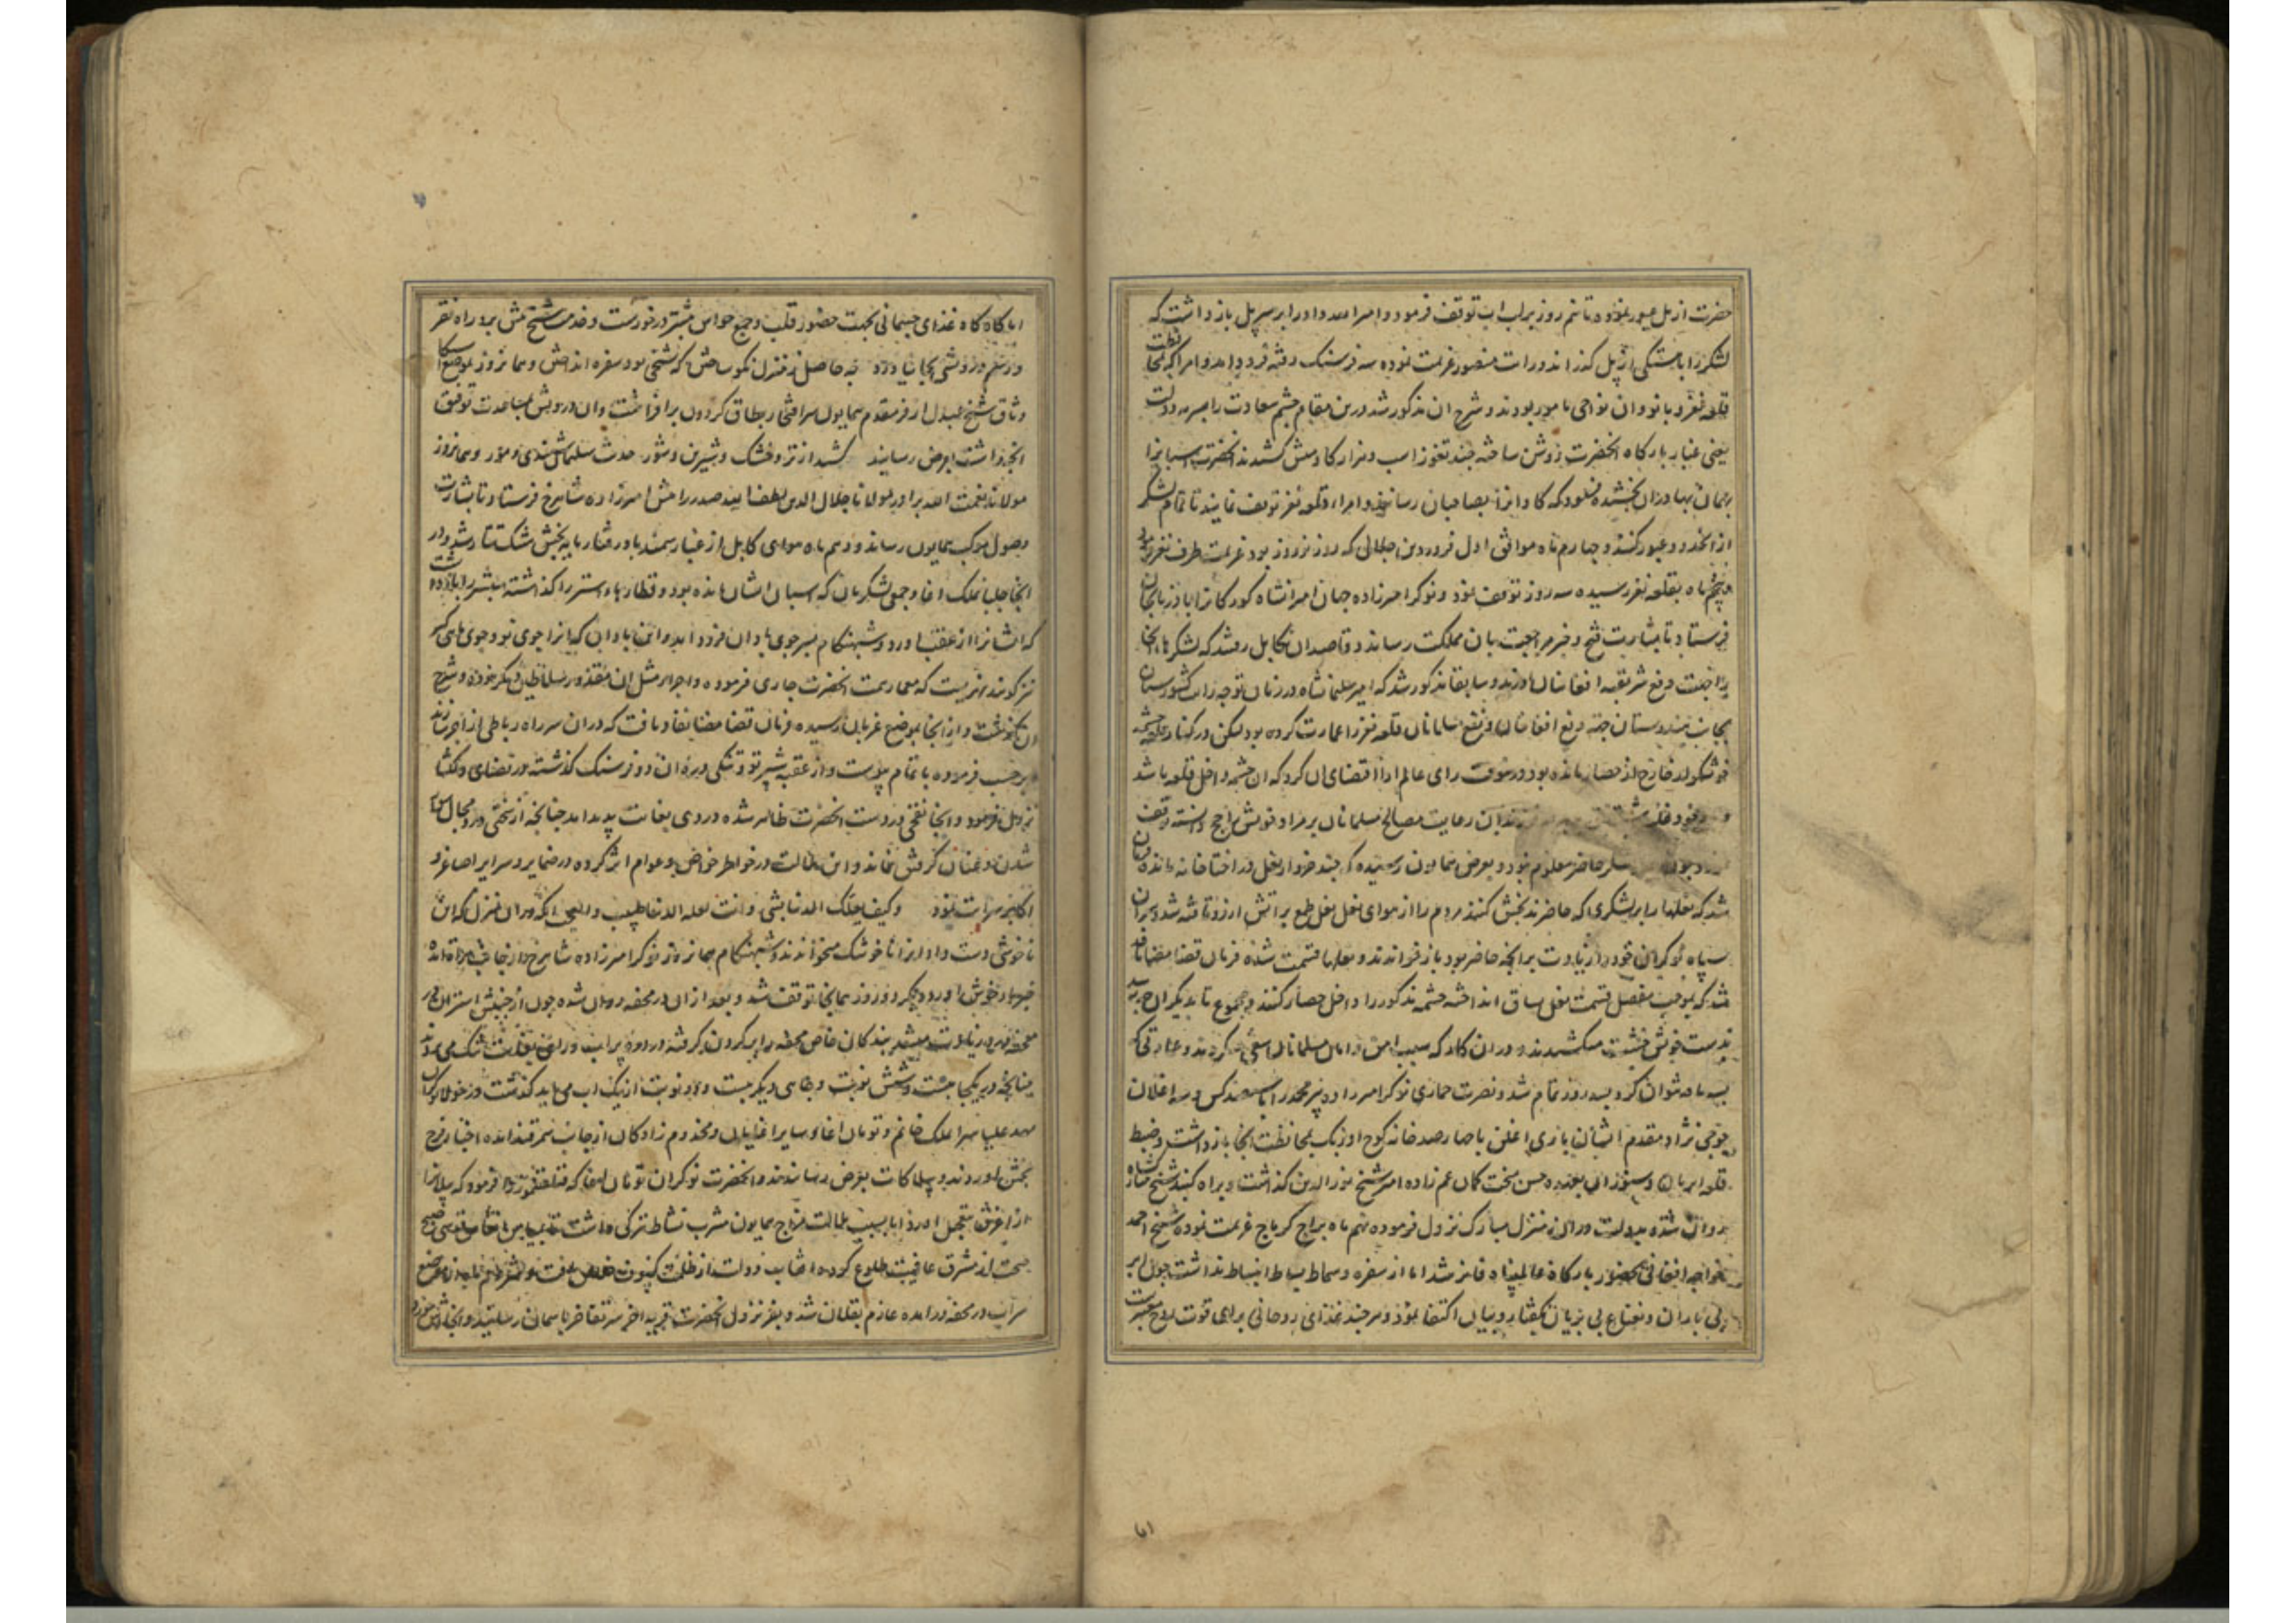 حضرت از پل عبور نموده تا نیم روز بر لب آب توقف فرمود و امرا را بر سر پل بازداشت که
لشکر را باهستگی از پل گذرانند و رایت منصور عزیمت نموده سه فرسنک رفته فرود آمد و امرا که بمحافظت
قلعه نغز و بانو و ان نواحی مامور بودند و شرح ان مذکور شد درین مقام چشم سعادت را بسرمه دولت
یعنی غبار بارگاه انحضرت روشن ساخته چند تغوز اسب و هزار گاو پیش کشیدند انحضرت اسبانرا
بهمان بهادران بخشیده فرمود که گاوانرا بصاحبان رسانند و امرا در قلعه نغز توقف نمایند تا تمام لشکر
از انحدود عبور کنند و چهارم ماه موافق اول فروردین جلالی که روز نوروز بود عزیمت طرف نغز نمود
و پنجم ماه بقلعه نغز رسیده سه روز توقف نمود و نوکر امیرزاده جهان امیرانشاه کورکان را باذربایجان
فرستاد تا بشارت فتح و خبر مراجعت بان مملکت رساند و قاصدان بکابل رفتند که لشکرهاء انجا
را جهت دفع شر بقیه افغانیان اورند و سابقا مذکور شد که امیر سلیمانشاه در زمان توجه رایت کشورستان
بجانب هندوستان جهة دفع افغانیان و نفع مسلمانان قلعه نغز را عمارت کرده بود لیکن در کنار قلعه چشمه
خوشگوار خارج از حصار مانده بود درینوقت رای عالم ارا اقتضای ان کرد که ان چشمه داخل قلعه باشد
رعایت مصالح مسلمانان بر مراد خویش راجح دانسته توقف
حاضر معلوم نمود و بعرض همایون رسیده که چند خروار نعل در اختاخانه مانده
شد که نعلها را بر لشکری که حاضرند بخش کنند مردم را از هوای نعل نعل طمع بر اتش ارزو تافته شد و سران
سپاه نوکران خود را زیادت بر انچه حاضر بود باز خواندند و نعلها قسمت شده فرمان قضا مضا نافذ
شد که بموجب مفصل قسمت نعل یساق انداخته چشمه مذکور را داخل حصار کنند و مجموع تا بدیکران چه رسد
بدست خویش خشت میکشیدند و دران کار که سبب امن و امان مسلمانان سعی کردند و عمارتی که
بسه ماه نتوان کرد بسه روز تمام شد و نصرت حماری نوکر امیرزاده پیر محمد را با سیصد کس و سه اغلان
جوجی نژاد مقدم ایشان باری اغلن با چهارصد خانه کوج اوزبک بمحافظت انجا بازداشت و ضبط
قلعه ایریاب و شنوزان بعهده حسن سخت کمان عم زاده امیر شیخ نورالدین گذاشت و براه کنبد شیخ مبارکشاه
روان شده بدولت دران منزل مبارک نزول فرموده نهم ماه براج کرماج عزیمت نموده شیخ احمد
خواجه افغانی بحضور بارگاه عالمپناه فایز شد اما از سفره و سماط بساط انبساط نداشت چون ابر
بی باران و نعناع بی بریان بگفتار و بیان اکتفا نمود و هرچند غذای روحانی برای قوت روح معتبرست
اما گاه گاه غذای جسمانی بجهت حضور قلب و جمع حواس بیشتر درخورست و خدمت شیخ بیش بدو راه فقر
و رسم درویشی بجا نیاورد چه حاصل منزل نموساختن که شخی بود سفره انداختن و همانروز بموضع اسکا
وثاق شیخ عبدل از فر مقدم همایون سرافتخار بطاق کردون برافراشت و ان درویش بمساعدت توفیق
انچه داشت بعرض رسانید کشید از تر و خشک و شیرین و شور حدیث سلیمانش بندی و مور و همانروز
مولانا نعمت الله برادر مولانا جلال الدین لطف الله صدر را پیش امیرزاده شاهرخ فرستاد تا بشارت
وصول موکب همایون رساند و دهم ماه هوای کابل از غبار سمند باد رفتار مایه بخش مشک تتار شد و از
انجا جلبانملک اغا و جمعی لشکریان که اسبان ایشان مانده بود و قطارهاء استر را گذاشته مبشر را بازداشت
که ایشانرا از عقب اورد و شبهنکام بسر جوی ماوران فرود امد و این ماوران که انرا جوی نو و جوی ماهی گیر
نیز گویند نهریست که معمار همت انحضرت جاری فرموده و اجراء مثل ان مقدور سلاطین دیگر نبوده و شرح
ان گذشت و از انجا بموضع غربان رسیده فرمان قضا مضا نفاد یافت که دران سر راه رباطی از اجر سازند
برحسب فرموده باتمام پیوست و از عقبه شیرتو و تنگی دره ان دو فرسنک گذشته در فضای دلگشا
نزول فرمود و انجا نفخی در دست انحضرت ظاهر شده در وی بغایت پدید امد چنانچه از سختی درد مجال سوار
شدن و عنان گرفتن نماند و این ملالت در خواطر خواص و عوام اثر کرده در ضمایر و سرایر اصاغر و
اکابر سرایت نمود وکیف یعلک الدنیا بشی وانت لعلة الدنیا طبیب والعجب انکه دران منزل که ان
ناخوشی دست داد انرا ناخوشک میخواندند و شبهنکام همانروز نوکر امیرزاده شاهرخ از جانب هراة امده
خبرهاء خوش اورد و دیگر دو روز همانجا توقف شد و بعد ازان در محفه روان شده چون از جنبش استران در
محفه درد زیادت میشد بندکان خاص محفه را بر گردن گرفته در دره پر اب و راهی بغایت تنک می بردند
چنانچه در یکجا بیست و شش نوبت و جای دیگر بیست و دو نوبت از یک اب می باید گذشت و زخولا نوکران
مهد علیا سرا ملک خانم و تومان اغا و سایر اغایان و مخدوم زادکان از جانب سمرقند امده اخبار فرح
بخش اوردند و پیلاکات بعرض رسانیدند و انحضرت نوکران تومان اغا که
ازاغرق بتعجیل اورد اما بسبب ملالت مزاج همایون مشرب نشاط تیرگی داشت
صحت از مشرق عافیت طلوع کرده افتاب دولت از ظلمت کسوف خلاص یافت
سراب در محفه درامده عازم بقلان شد و بفر نزول انحضرت قریه اخر سر تفاخر باسمان رسانید